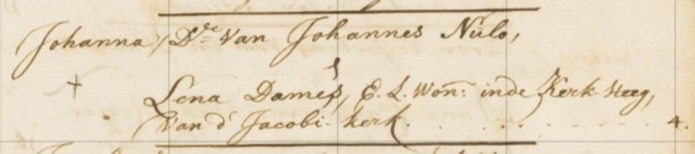 Johanna, Dr. Van Johannes Nülo,
Lena Dames, E. L. Won: inde Kerk steeg,
Van d' Jacobi-kerk . . . . . . . . . 4.